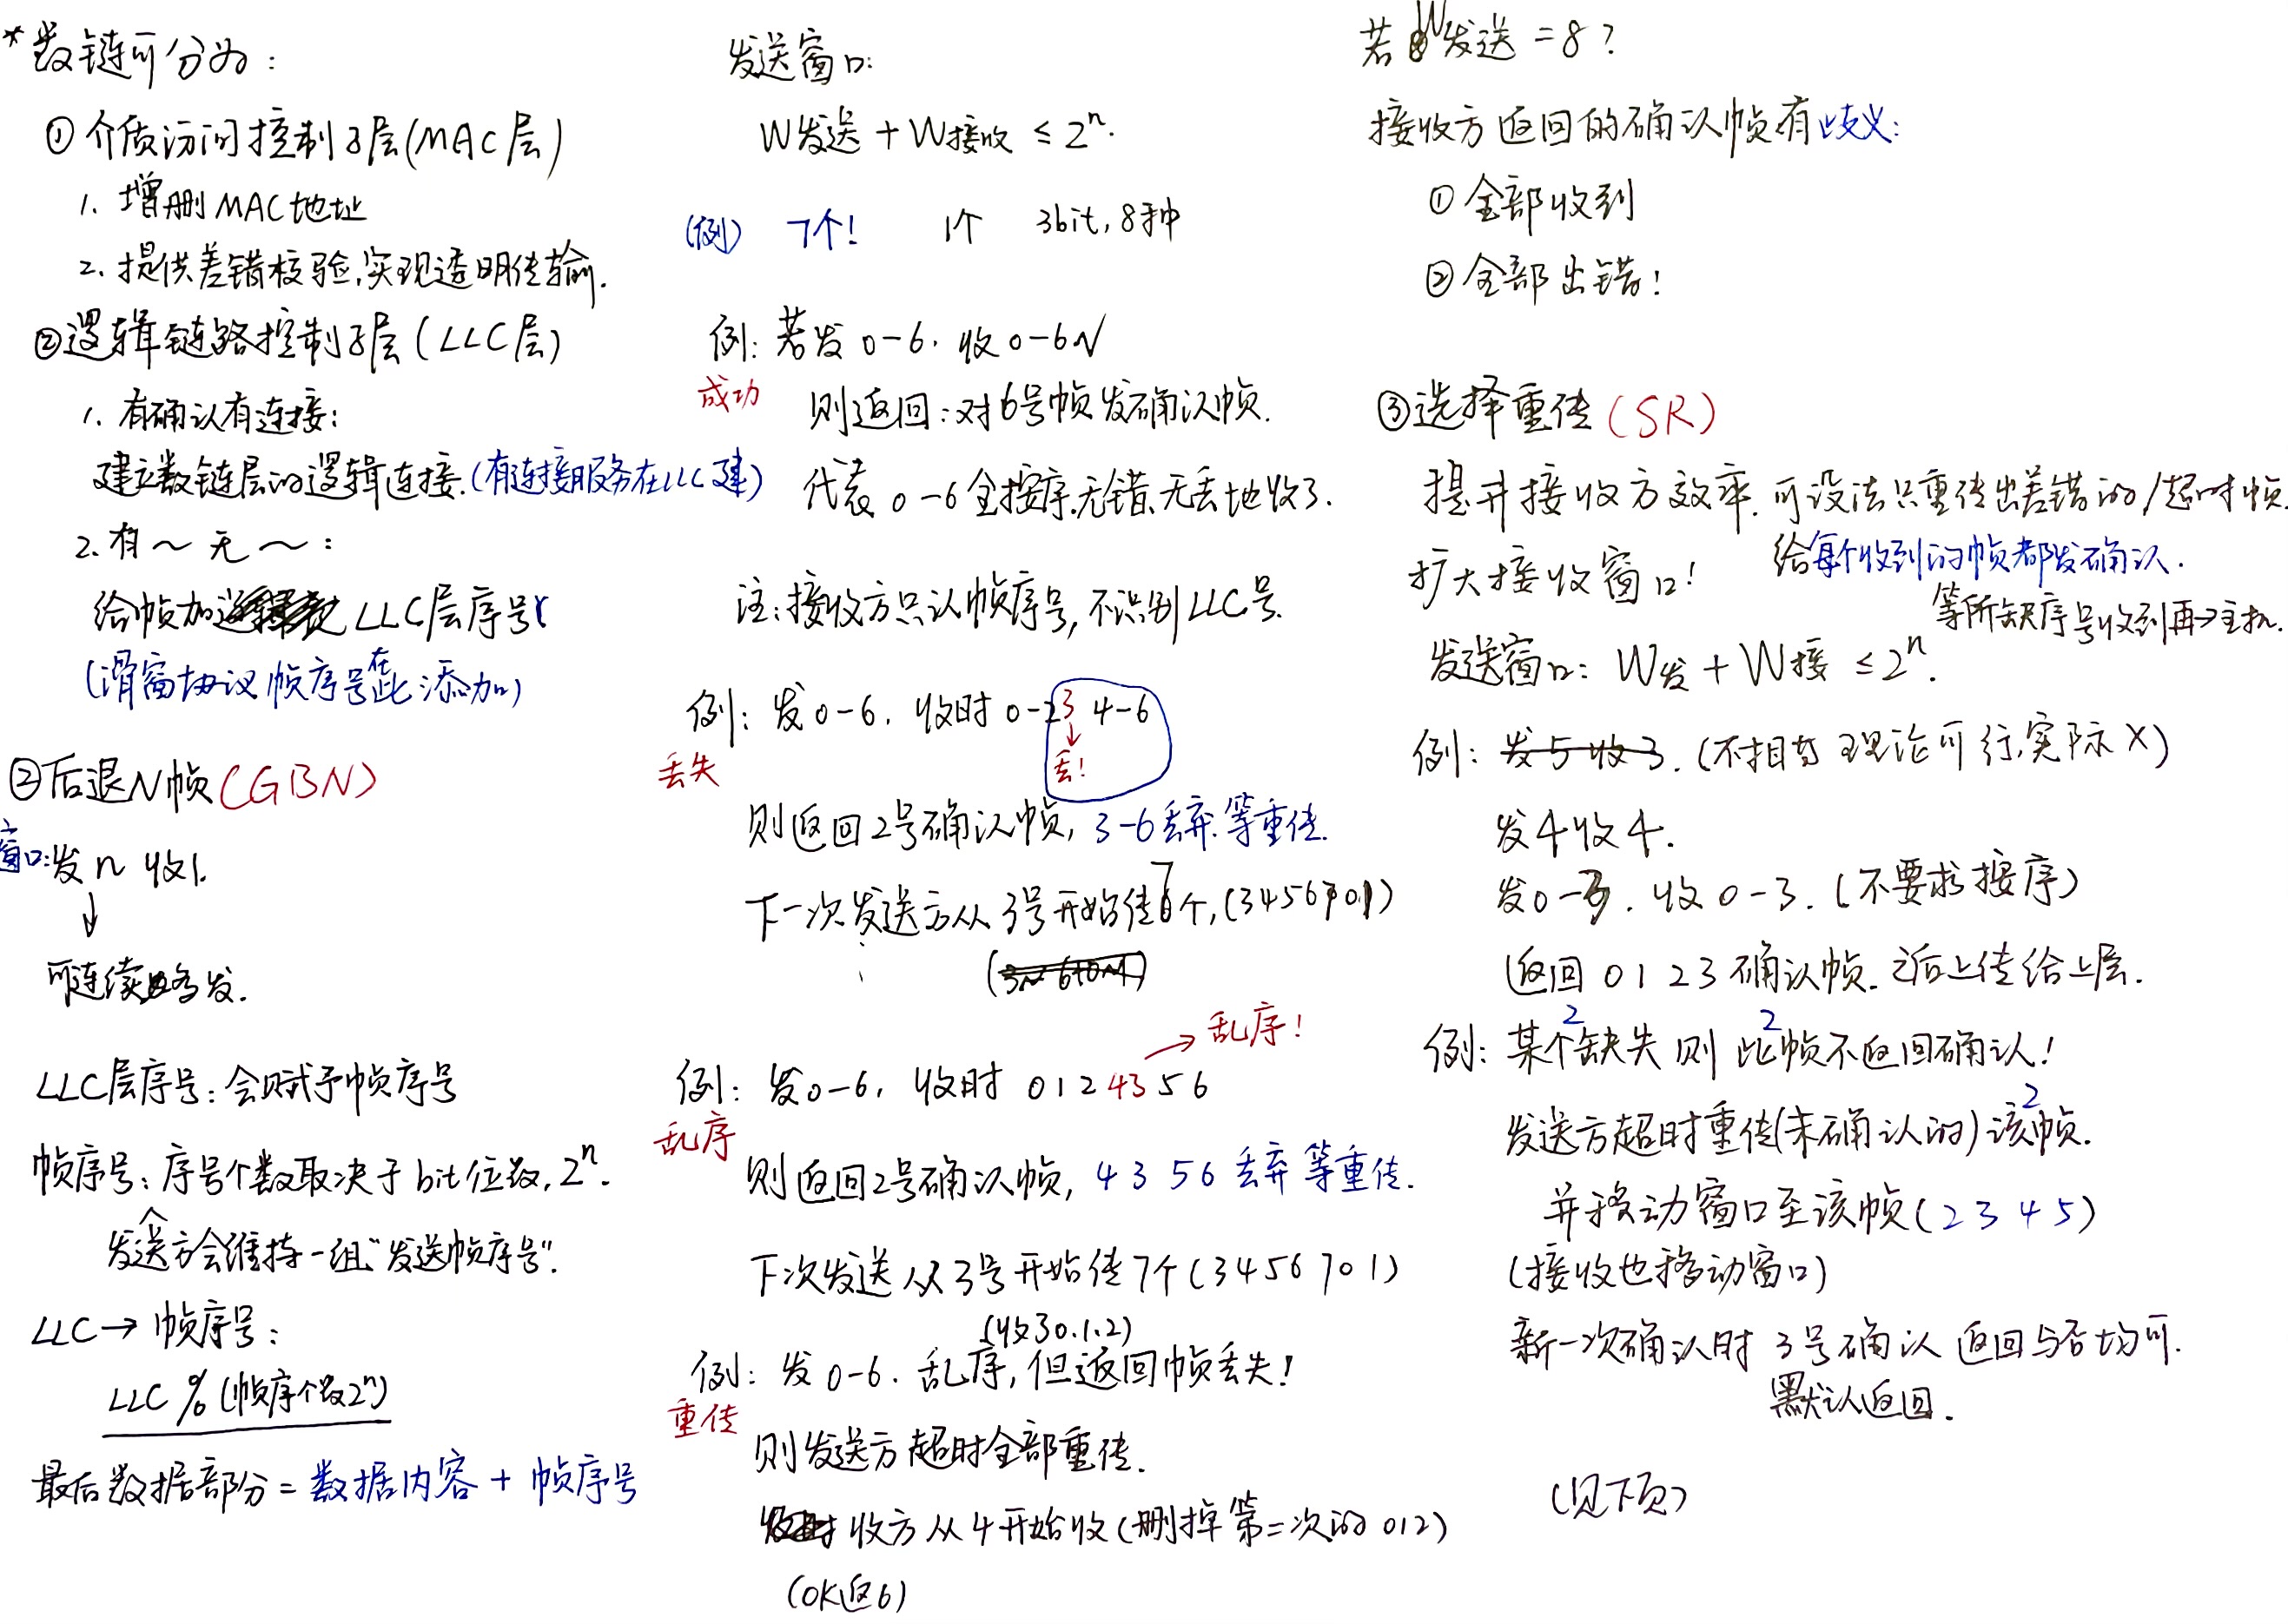 *数链可分为:
①介质访问控制子层(MAC层)
1. 增删MAC地址
2. 提供差错校验,实现透明传输.
②逻辑链路控制子层(LLC层)
1. 有确认有连接:
建立数链层的逻辑连接.(有连接服务在LLC建)
2. 有～无～:
给帧加 LLC层序号
(滑窗协议帧序号在此添加)
②后退N帧(GBN)
窗口:发n收1.
↓
可连续多发.
LLC层序号:会赋予帧序号
帧序号:序号个数取决于bit位数,2ⁿ.
发送方会维持一组"发送帧序号".
LLC→帧序号:
LLC % (帧序个数2ⁿ)
最后数据部分=数据内容+帧序号
发送窗口:
W发送+W接收≤2ⁿ.
(例) 7个! 1个 3bit,8种
例:若发0-6.收0-6√
成功
则返回:对6号帧发确认帧.
代表0-6全按序.无错.无丢地收了.
注:接收方只认帧序号,不识别LLC号.
例:发0-6.收时0-2 3 4-6
丢失 ↓丢!
则返回2号确认帧,3-6丢弃.等重传.
下一次发送方从3号开始传7个,(3456701)
→乱序!
例:发0-6,收时 0 1 2 4 3 5 6
乱序
则返回2号确认帧,4 3 5 6丢弃 等重传.
下次发送从3号开始传7个(3456701)
(收了0.1.2)
例:发0-6.乱序,但返回帧丢失!
重传
则发送方超时全部重传.
收方从4开始收(删掉第二次的012)
(OK返6)
若W发送=8?
接收方返回的确认帧有歧义:
①全部收到
②全部出错!
③选择重传(SR)
提升接收方效率.可设法只重传出差错的/超时帧.
给每个收到的帧都发确认.
扩大接收窗口!
等所缺序号收到再→主机.
发送窗口:W发+W接≤2ⁿ.
例:发5收3.(不相等 理论可行,实际X)
发4收4.
发0-3.收0-3.(不要求按序)
返回0 1 2 3确认帧.之后上传给上层.
例:某个2缺失 则 此2帧不返回确认!
发送方超时重传(未确认的)该2帧.
并移动窗口至该帧(2 3 4 5)
(接收也移动窗口)
新一次确认时 3号确认 返回与否均可.
默认返回.
(见下页)